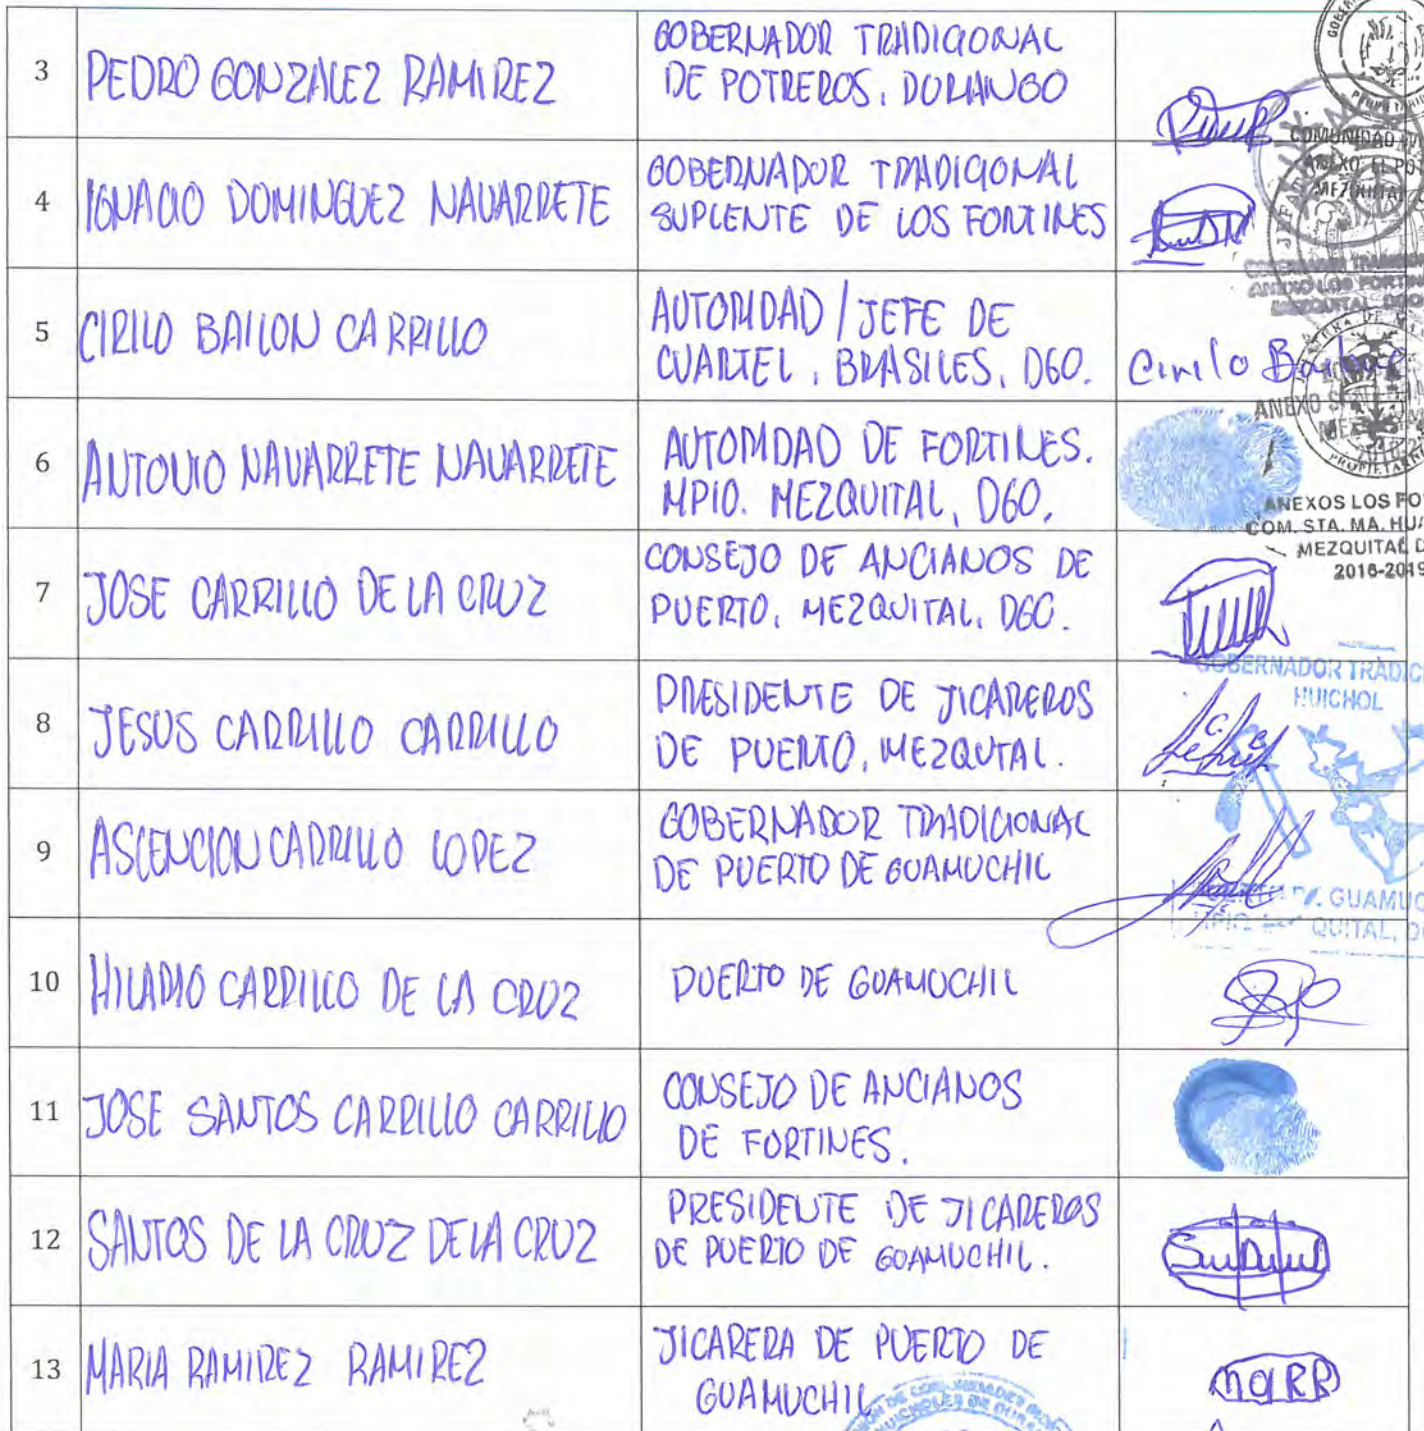 3 PEDRO GONZALEZ RAMIREZ
GOBERNADOR TRADICIONAL
DE POTREROS, DURANGO
COMUNIDAD
ANEXO EL PO
MEZQUITAL
4 IGNACIO DOMINGUEZ NAVARRETE
GOBERNADOR TRADICIONAL
SUPLENTE DE LOS FORTINES
5 CIRILO BAILON CARRILLO
AUTORIDAD / JEFE DE
CUARTEL, BRASILES, DGO.
Cirilo
6 ANTONIO NAVARRETE NAVARRETE
AUTORIDAD DE FORTINES.
MPIO. MEZQUITAL, DGO.
ANEXO
ANEXOS LOS FO
COM. STA. MA. HUA
MEZQUITAL D
2016-2019
7 JOSE CARRILLO DE LA CRUZ
CONSEJO DE ANCIANOS DE
PUERTO, MEZQUITAL, DGO.
GOBERNADOR TRADICI
HUICHOL
8 JESUS CARRILLO CARRILLO
PRESIDENTE DE JICAREROS
DE PUERTO, MEZQUTAL.
9 ASCENCION CARRILLO LOPEZ
GOBERNADOR TRADICIONAL
DE PUERTO DE GUAMUCHIL
GUAMUC
QUITAL, D
10 HILARIO CARRILLO DE LA CRUZ
PUERTO DE GUAMUCHIL
11 JOSE SANTOS CARRILLO CARRILLO
CONSEJO DE ANCIANOS
DE FORTINES.
12 SANTOS DE LA CRUZ DE LA CRUZ
PRESIDENTE DE JICAREROS
DE PUERTO DE GUAMUCHIL.
13 MARIA RAMIREZ RAMIREZ
JICARERA DE PUERTO DE
GUAMUCHIL
maRR